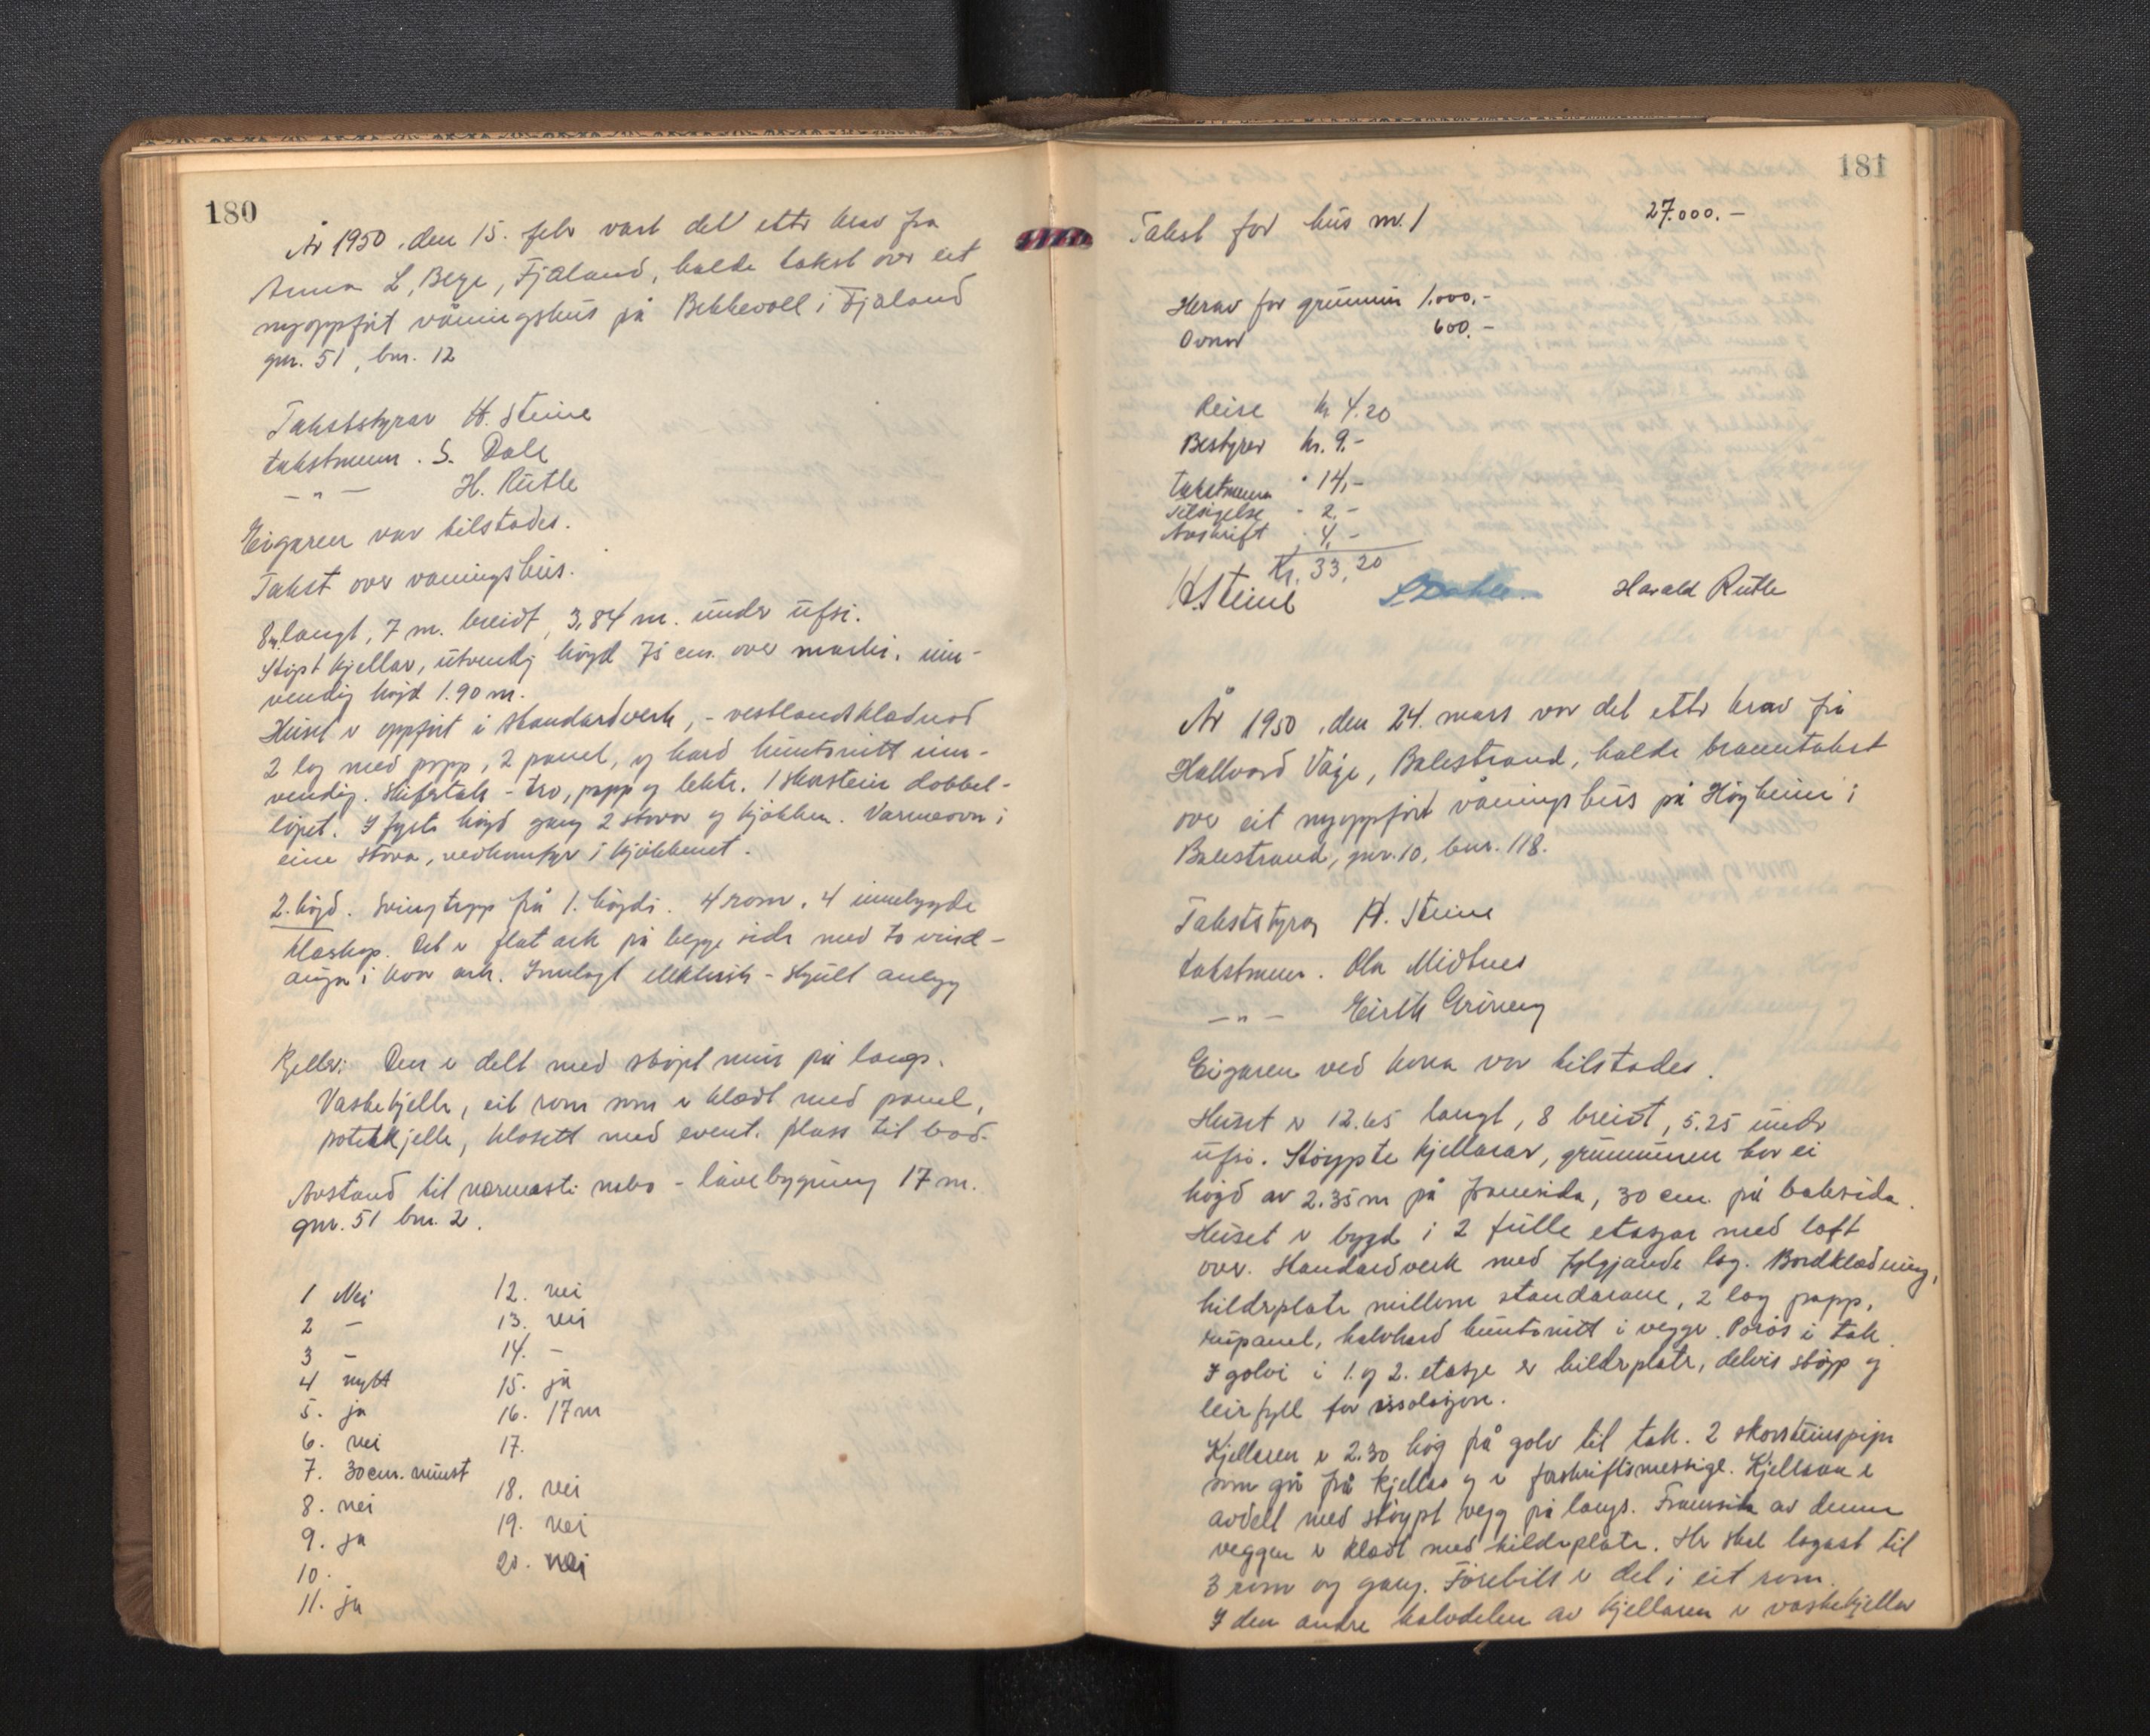 180
År 1950, den 15. febr vart det etter krav fra
Anna L. Berge, Fjæland, halde takst over eit
nyoppført våningshus på Bekkevoll i Fjæland
gnr. 51, bnr. 12
Takststyrar H. Steine
takstmenn. S. Dale
– " – H. Rutle
Eigaren var tilstades.
Takst over våningshus.
8 m langt, 7 m. breidt, 3,84 m. under ufsi.
Støpt kjellar, utvendig høgd 75 cm. over marki, inn-
vendig høgd 1.90 m.
Huset er oppført i standardverk, - vestlandskladnad
2 lag med papp, 2 panel, og hard huntonitt inn-
vendig. Skifertak - tro, papp og lekter. 1 skorstein dobbel-
løpet. I fyrste høgd gang 2 stover og kjøkken. Varmeovn i
eine stova, vedkomfyr i kjøkkenet.
2. høgd. Svingtrapp frå 1. høgdi. 4 rom. 4 innebygde
klæskap. Det er flat ark på begge sider med to vind-
augo i kvar ark. Innlagt elektrisk - skjult anlegg
Kjeller: Den er delt med støpt mur på langs.
Vaskekjeller, eit rom som er klædt med panel,
potetkjeller, klosett med event. plass til bad.
Avstand til nærmaste nabo - låvebygning 17 m.
gnr. 51 bnr. 2.
1 Nei
2 –
3 –
4 nytt
5. ja
6. nei
7. 30 cm. minst
8. nei
9. ja
10.
11. ja
12. nei
13. nei
14. –
15. ja
16. 17 m
17.
18. nei
19. nei
20. nei
181
Takst for hus nr. 1 27.000.–
Herav for grunnmur 1.000.–
Ovnar 600.–
Reise kr 4.20
Bestyrer kr. 9.–
Takstmenn " 14,–
Tilsigelse - 2.–
Avskrift . 4,–
Kr. 33,20
H. Steine S. Dahle Harald Rutle
År 1950, den 24. mars var det etter krav frå
Hallvard Våge, Balestrand, halde branntakst
over eit nyoppført våningshus på Høgheim i
Balestrand, gnr. 10, bnr. 118.
Takststyrar H. Steine
takstmenn. Ola Midtnes
– " – Eirik Grinery
Eigaren ved kona var tilstades.
Huset er 12.65 langt, 8 breidt, 5.25 under
ufsi. Støypte kjellarar, grunnmuren har ei
høgd av 2.35 m på framsida, 30 cm. på baksida.
Huset er bygd i 2 fulle etasjar med loft
over. Standardverk med fylgjande lag. Bordklædning,
bilderplater millom standarane, 2 lag papp,
rupanel, halvhard huntonitt i vegger. Porøs i tak.
I golvi i 1. og 2. etasje er bilderplater, delvis støpp og
leirfyll for issolasjon.
Kjellaren er 2.30 høg frå golv til tak. 2 skorsteinspiper
som går frå kjellar og er forskriftsmessige. Kjellaren er
avdelt med støypt vegg på langs. Framsida av denne
veggen er klædt med bilderplater. Her skal lagast til
3 rom og gang. Førebils er det i eit rom.
I den andre halvdelen av kjellaren er vaskekjellar